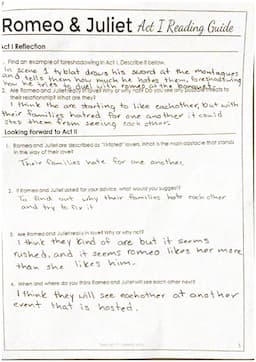 Romeo & Juliet Act I Reading Guide
Act I Reflection
1. Find an example of foreshadowing in Act I. Describe it below.
In scene 1 tyblat draws his sword at the montagues
and tells them how much he hates them, foreshadowing
how he tries to duel with romeo at the banquet.
2. Are Romeo and Juliet really in love? Why or why not? Do you see any possible threats to
their relationship? What are they?
I think the are starting to like eachother, but with
their families hatred for one another it could
stop them from seeing each other.
Looking Forward to Act II
1. Romeo and Juliet are described as "ill-fated" lovers. What is the main obstacle that stands
in the way of their love?
Their families hate for one another.
2. If Romeo and Juliet asked for your advice, what would you suggest?
To find out why their families hate eachother
and try to fix it
3. Are Romeo and Juliet really in love? Why or why not?
I think they kind of are but it seems
rushed, and it seems romeo likes her more
than she likes him.
4. When and where do you think Romeo and Juliet will see each other next?
I think they will see eachother at another
event that is hosted.